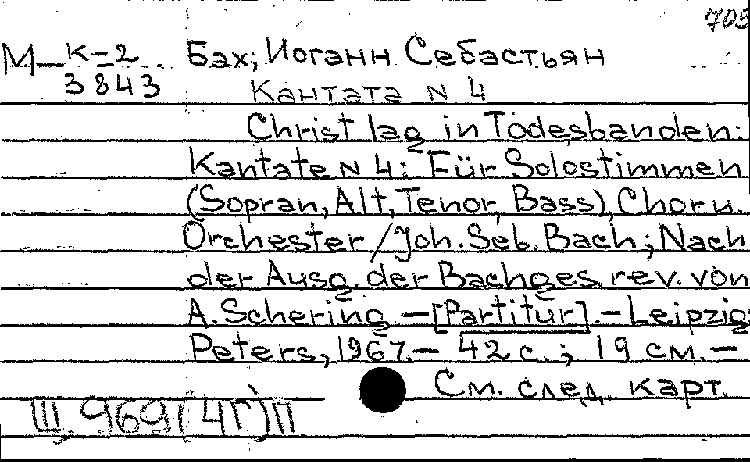 705
М-К-2 Бах, Иоганн Себастьян
3843
Кантата N 4
Christ lag in Todesbanden:
Kantate N 4: Für Solostimmen
(Sopran, Alt, Tenor, Bass), Chor u.
Orchester / Joh. Seb. Bach; Nach
der Ausg. der Bachges. rev. von
A. Schering. - [Partitur]. - Leipzig:
Peters, 1967. - 42 с.; 19 см. -
См. след. карт.
Ш 969(4Г)П